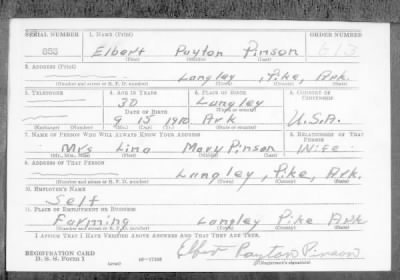 SERIAL NUMBER 1. NAME (Print) ORDER NUMBER
853 Elbert Payton Pinson 613
(First) (Middle) (Last)
2. ADDRESS (Print)
Langley, Pike, Ark.
(Number and street or R. F. D. number) (Town) (County) (State)
3. TELEPHONE 4. AGE IN YEARS 5. PLACE OF BIRTH 6. COUNTRY OF CITIZENSHIP
30 Langley
DATE OF BIRTH
9 15 1910 Ark U.S.A.
(Exchange) (Number) (Mo.) (Day) (Yr.) (State or country)
7. NAME OF PERSON WHO WILL ALWAYS KNOW YOUR ADDRESS 8. RELATIONSHIP OF THAT PERSON
Mrs Lina Mary Pinson Wife
(Mr., Mrs., Miss) (First) (Middle) (Last)
9. ADDRESS OF THAT PERSON
Langley, Pike, Ark.
(Number and street or R. F. D. number) (Town) (County) (State)
10. EMPLOYER'S NAME
Self
11. PLACE OF EMPLOYMENT OR BUSINESS
Farming Langley Pike Ark
(Number and street or R. F. D. number) (Town) (County) (State)
I AFFIRM THAT I HAVE VERIFIED ABOVE ANSWERS AND THAT THEY ARE TRUE.
Elbert Payton Pinson
REGISTRATION CARD
D. S. S. Form 1 (over) (Registrant's signature)